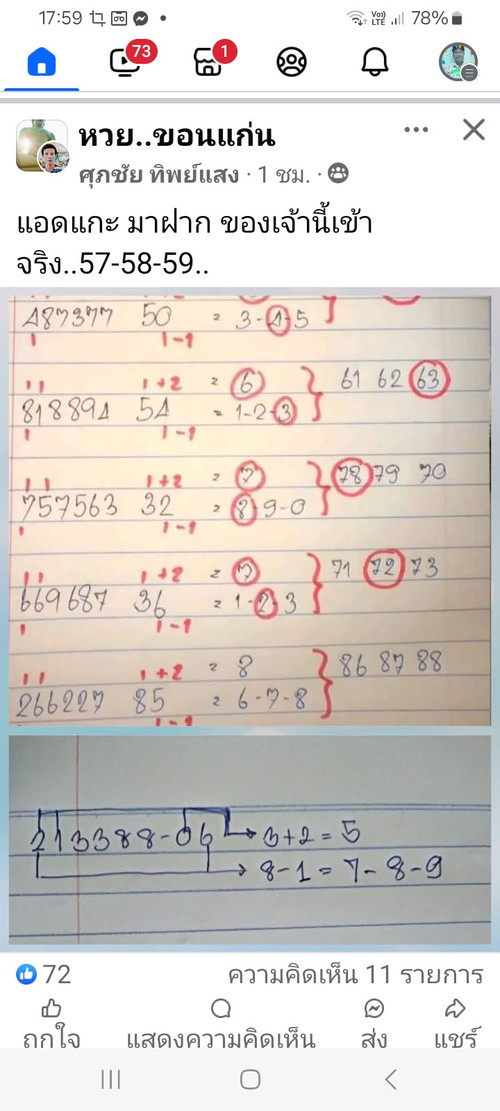 17:59 78%
Vo)) LTE
73 1
หวย..ขอนแก่น
ศุภชัย ทิพย์แสง · 1 ชม. ·
แอดแกะ มาฝาก ของเจ้านี้เข้า
จริง..57-58-59..
487377 50 = 3-4-5
1 1-1
11 1+2 = 6 61 62 63
818894 54 = 1-2-3
1 1-1
11 1+2 = 7 78 79 70
757563 32 = 8-9-0
1 1-1
11 1+2 = 7 71 72 73
669687 36 = 1-2-3
1 1-1
11 1+2 = 8 86 87 88
266227 85 = 6-7-8
1-1
213388-06 → 3+2=5
→ 8-1=7-8-9
72 ความคิดเห็น 11 รายการ
ถูกใจ แสดงความคิดเห็น ส่ง แชร์